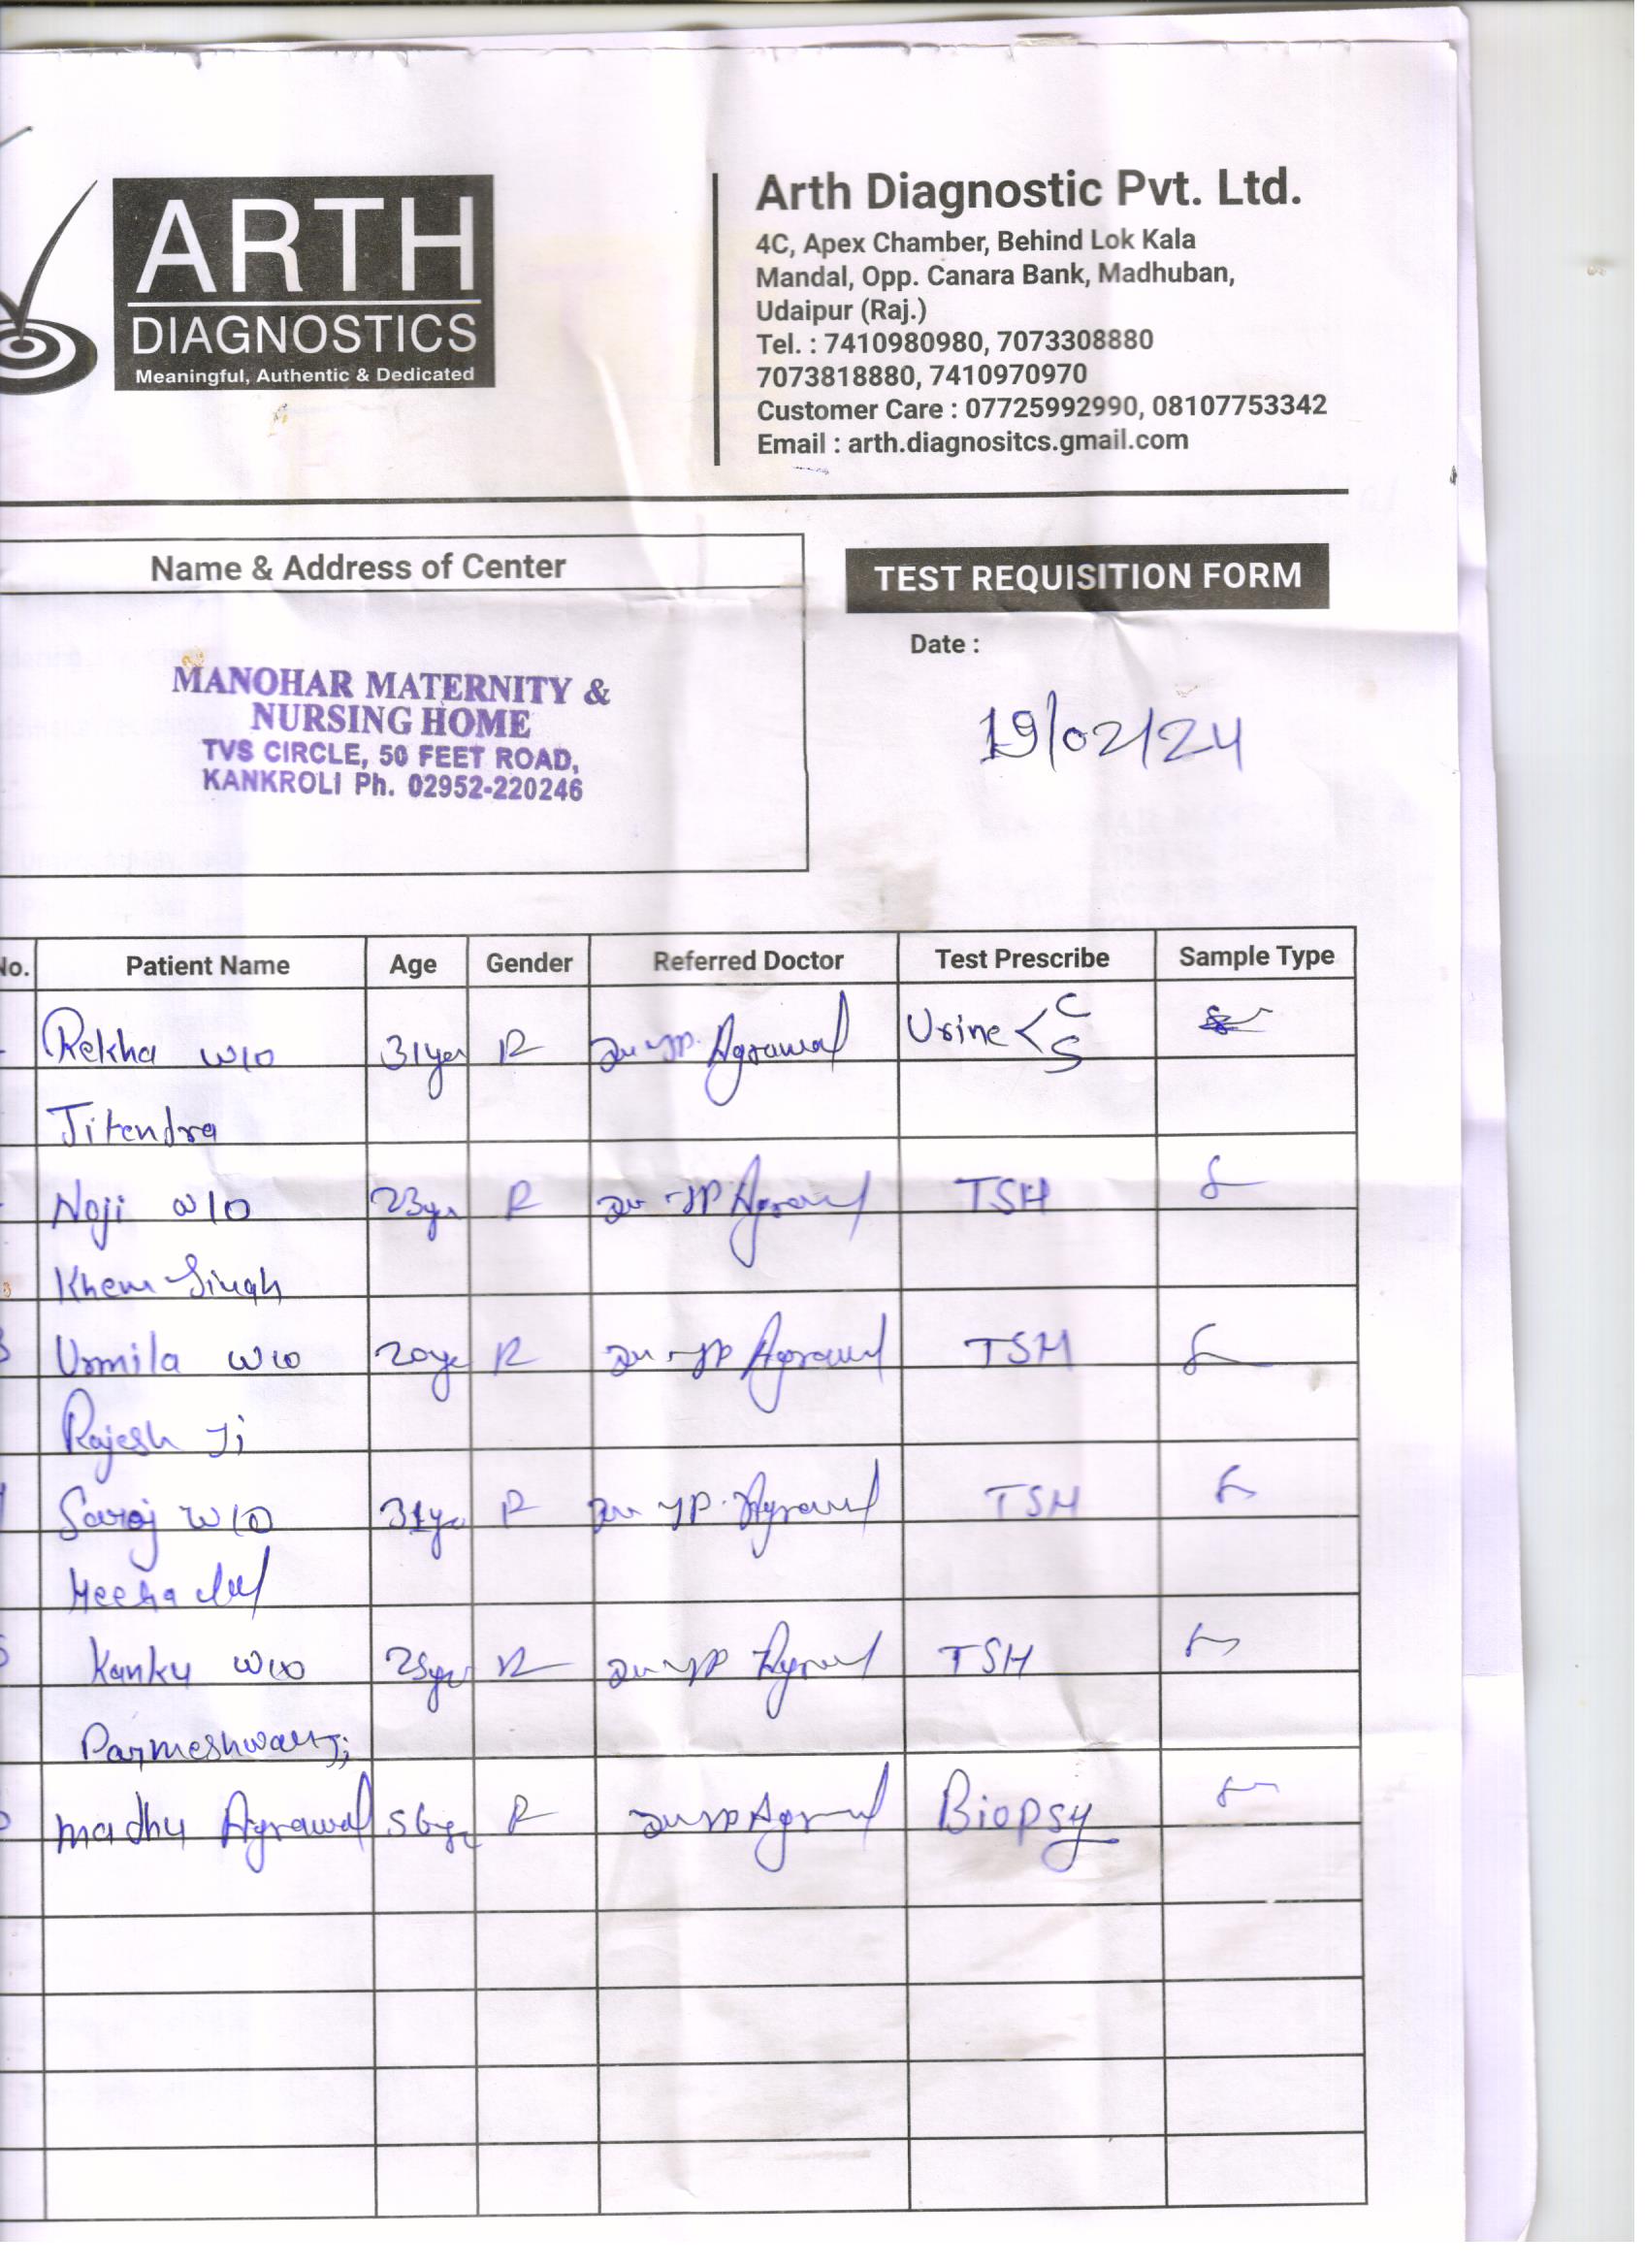 ARTH
DIAGNOSTICS
Meaningful, Authentic & Dedicated
Arth Diagnostic Pvt. Ltd.
4C, Apex Chamber, Behind Lok Kala
Mandal, Opp. Canara Bank, Madhuban,
Udaipur (Raj.)
Tel. : 7410980980, 7073308880
7073818880, 7410970970
Customer Care : 07725992990, 08107753342
Email : arth.diagnositcs.gmail.com
Name & Address of Center
TEST REQUISITION FORM
Date :
19/02/24
MANOHAR MATERNITY &
NURSING HOME
TVS CIRCLE, 50 FEET ROAD,
KANKROLI Ph. 02952-220246
No. Patient Name Age Gender Referred Doctor Test Prescribe Sample Type
Rekha w/o 31yrs Agrawal Urine < C S
Jitendra
Noji w/o 23yr Agrawal TSH
Khem Singh
Urmila w/o 20yr Agrawal TSH
Rajesh Ji
Saroj w/o 31yr Agrawal TSH
Kanku w/o 25yr Agrawal TSH
Parmeshwar Ji
Madhu Agrawal 56yr Agrawal Biopsy